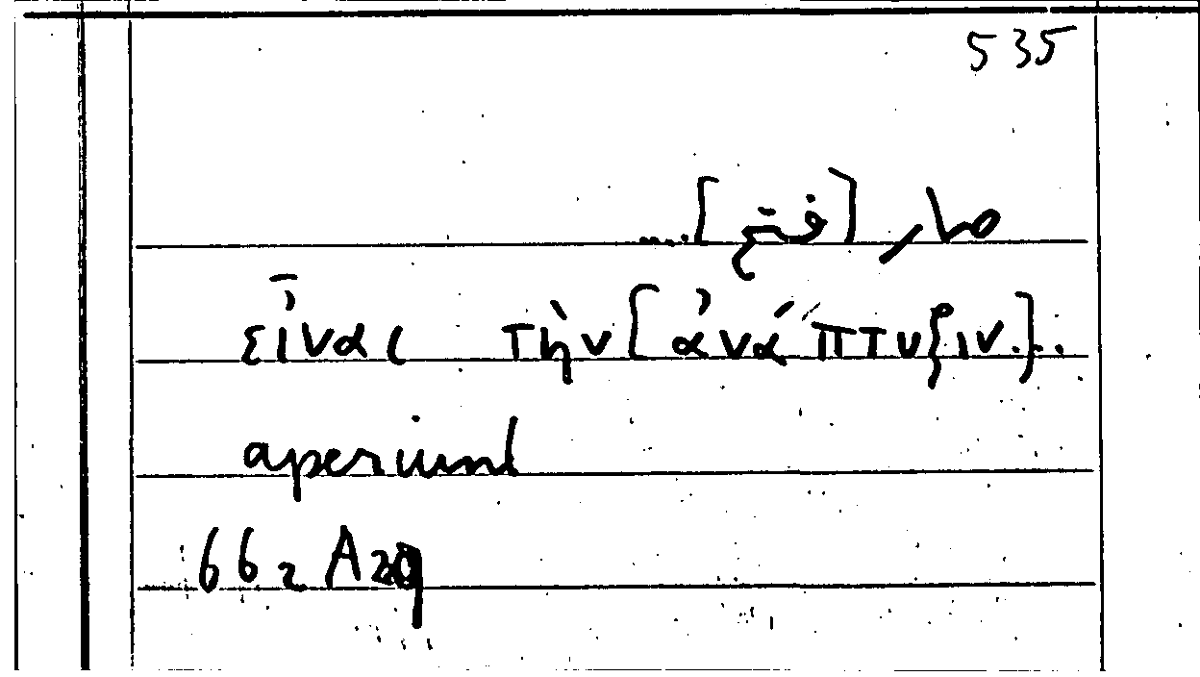 535
صار [فتح]....
εἶναι τὴν [ἀνάπτυξιν]...
aperiunt
66₂ A20